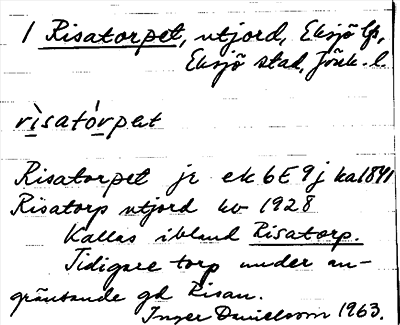 1 Risatorpet, utjord, Eksjö lfs,
Eksjö stad, Jönk. l
risatórpet
Risatorpet jr ek 6E9j ka 1841
Risatorp utjord kv 1928
Kallas ibland Risatorp.
Tidigare torp under an-
gränsande gd Risan.
Inger Danielsson 1963.